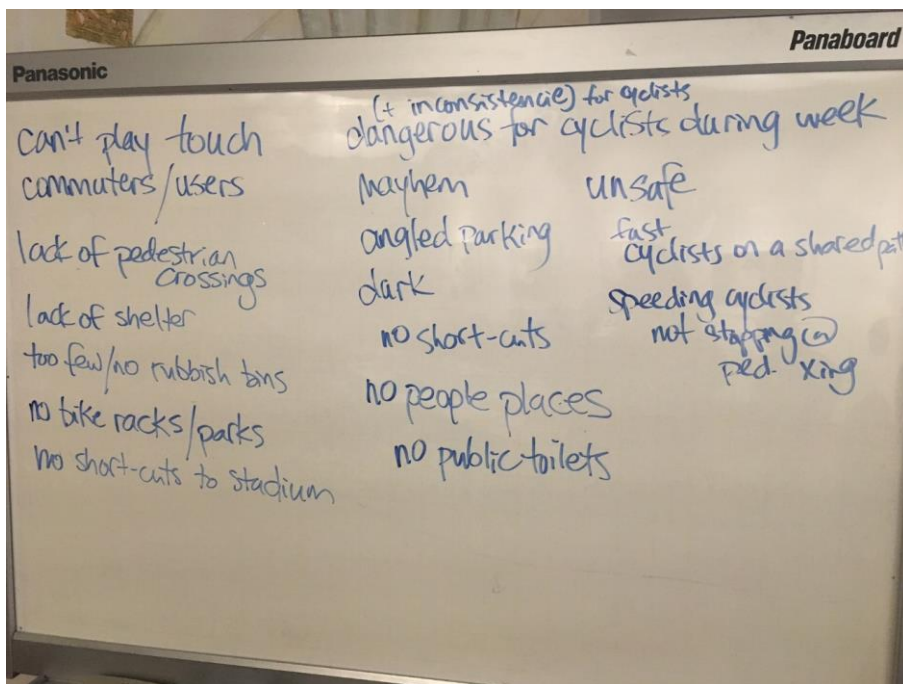 Panasonic
Panaboard
can't play touch
commuters/users
lack of pedestrian
crossings
lack of shelter
too few/no rubbish bins
no bike racks/parks
no short-cuts to stadium
(+ inconsistencie) for cyclists
dangerous for cyclists during week
mayhem
angled parking
dark
no short-cuts
no people places
no public toilets
unsafe
fast
cyclists on a shared path
speeding cyclists
not stopping @
ped. xing